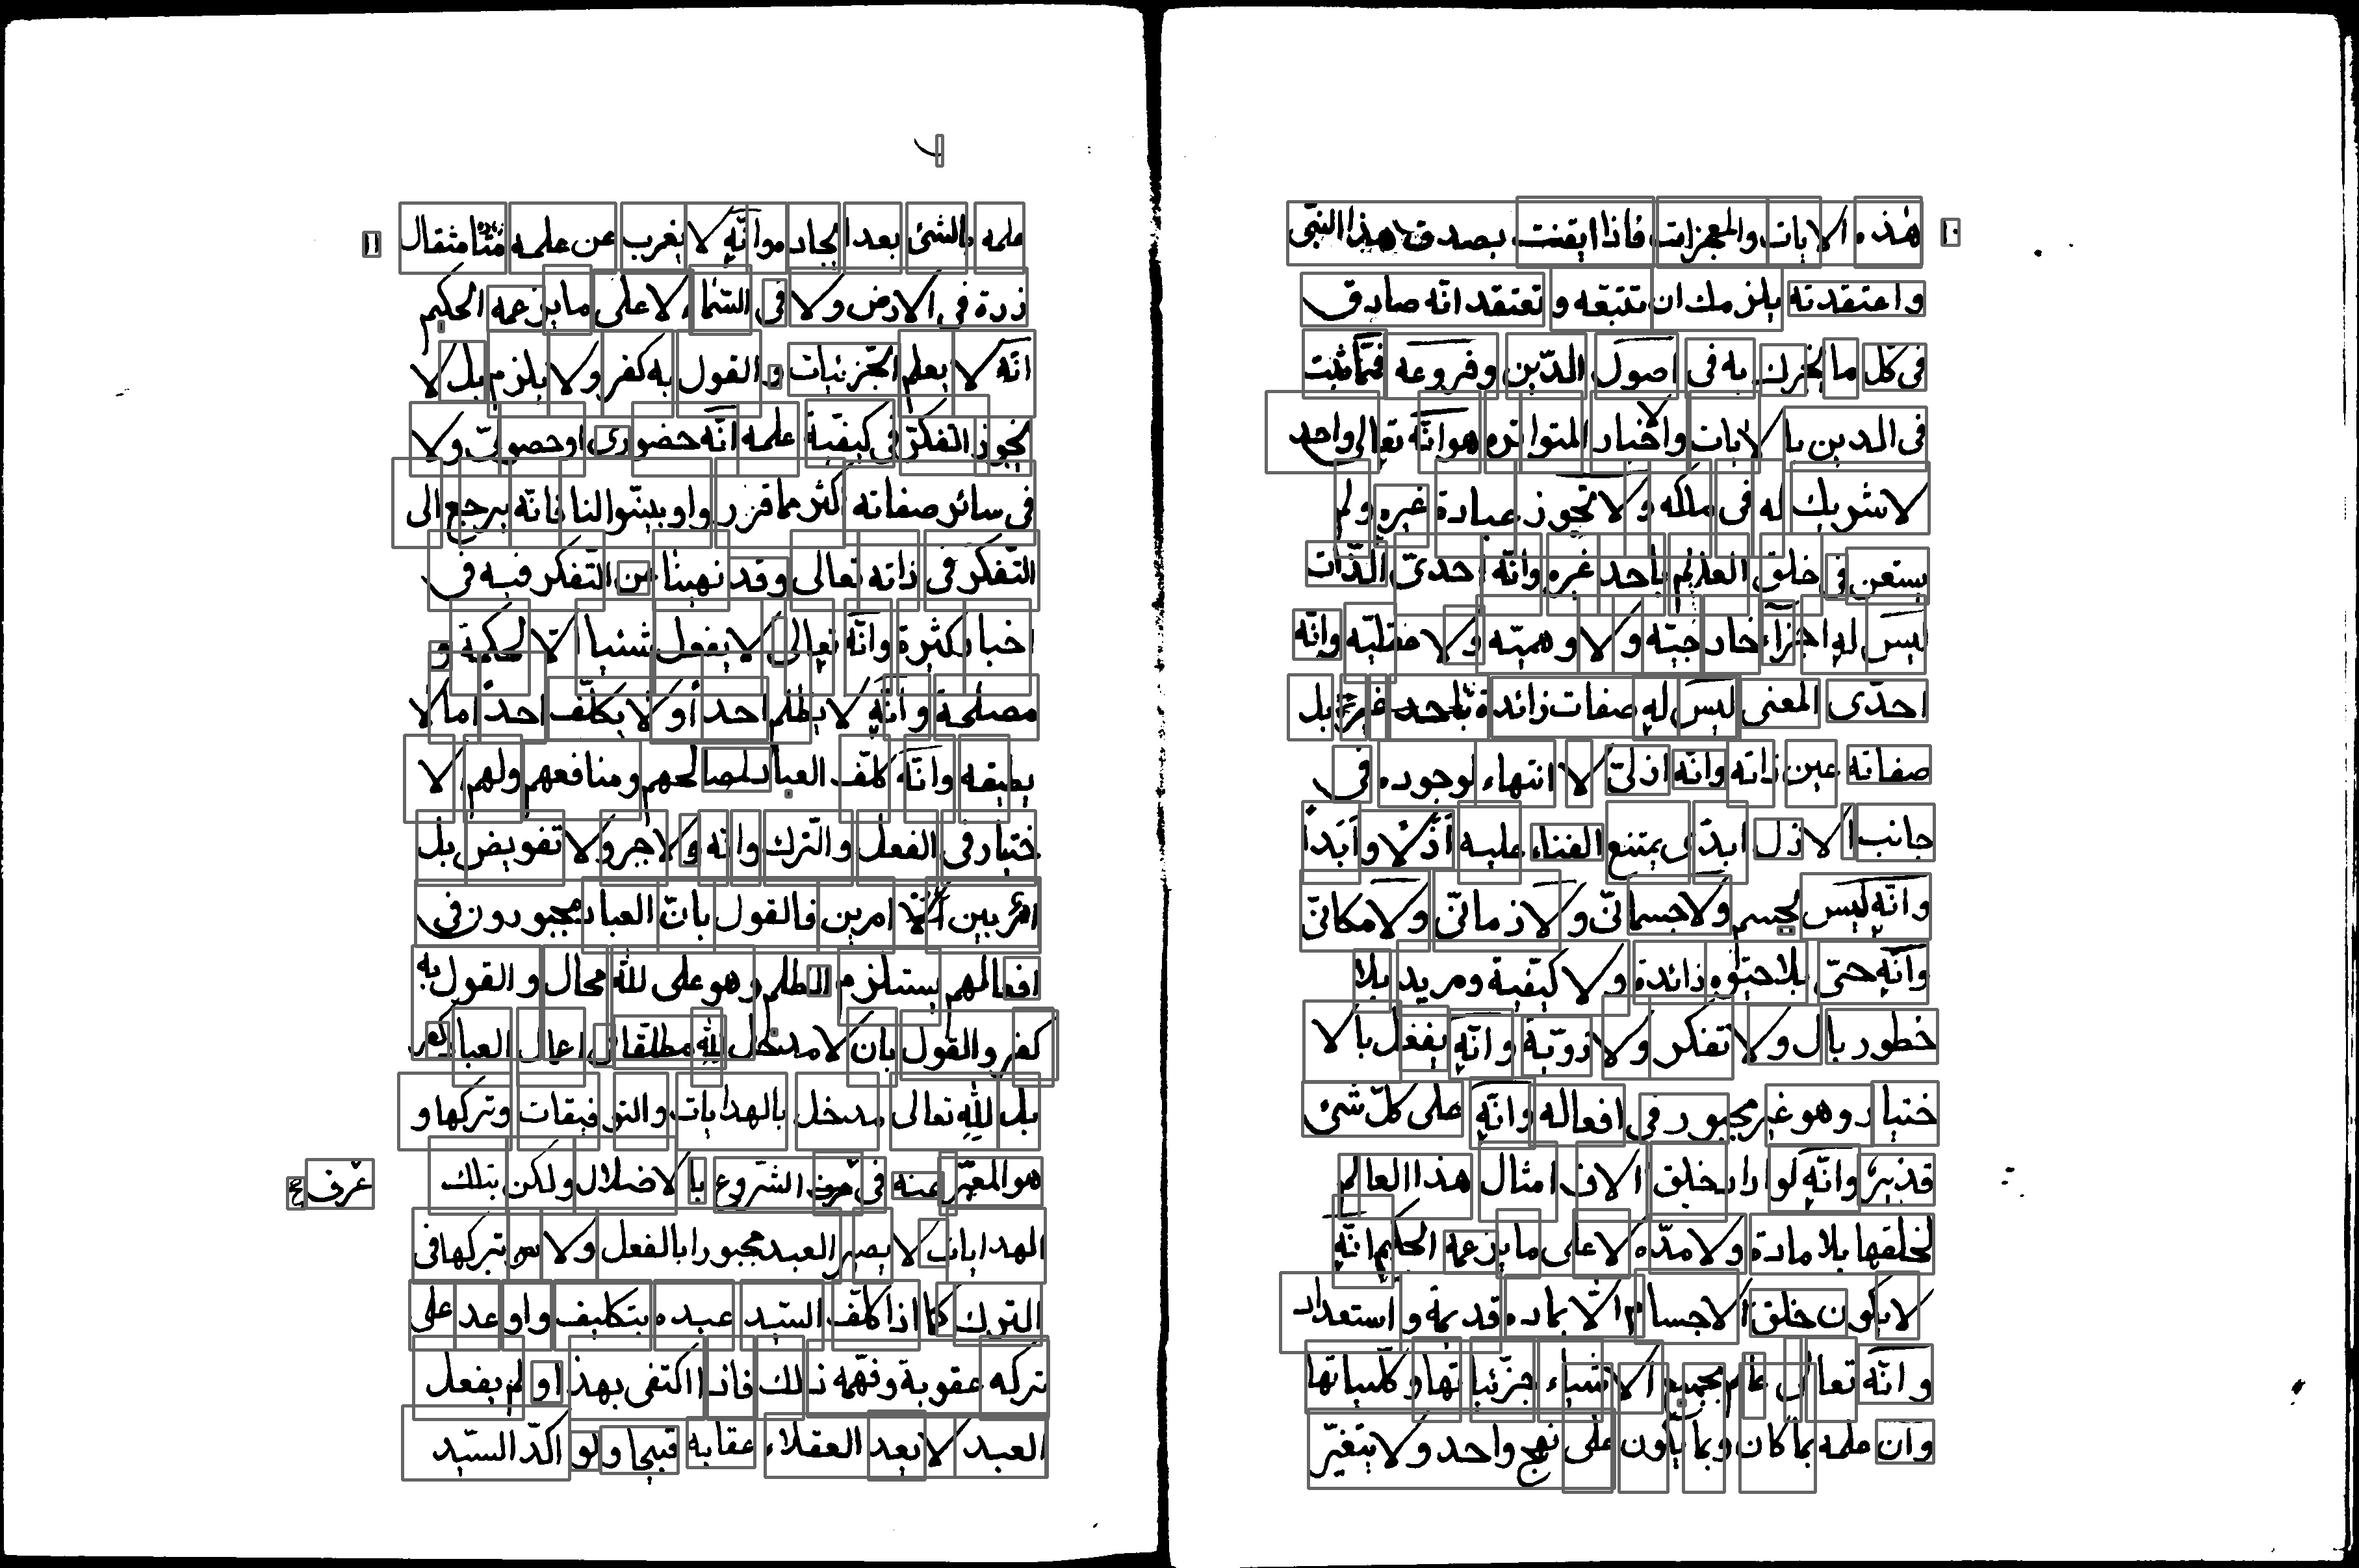 ١٠
هذه الايات والمعجزات فاذا ايقنت بصدق هذا النبّى
واعتقدته يلزمك ان تتبعه و تعتقد انّه صادق
فى كل ما يخبرك به فى اصول الدّين وفروعه فممّا ثبت
فى الدين بالايات والاخبار المتواتره هو انّه تعالى واحد
لا شريك له فى ملكه ولا تجوز عبادة غيره ولم
يستعن فى خلق العالم باحد غيره وانّه احدىّ الذّات
ليس له اجزاء خارجيّه ولا وهميّه ولا عقليّه وانّه
احدّى المعنى ليس له صفات زائدة بل
صفاته عين ذاته وانّه ازلىّ لا انتهاء لوجوده فى
جانب الازل ابدّى يمتنع الفناء عليه ازلا وابدا
وانّه ليس بجسم ولا جسمانىّ ولا زمانىّ ولا مكانىّ
وانّه حىّ بلا حيوٰه زائدة ولا كيفية ومريد بلا
خطور بال ولا تفكر ولا رويّة وانّه يفعل بالا
ختيار وهو غير مجبور فى افعاله وانّه على كلّ شئ
قدير وانّه لو اراد خلق الاف امثال هذا العالم
لخلقها بلا مادة ولا مدّه لا على ما يزعمه الحكيم انّه
لا يكون خلق الاجسام الّا بماده قديمة و استعداد
وانّه تعالى عالم بجميع الاشياء جزئياتها وكلّياتها
وان علمه بما كان وبما يكون على نهج واحد ولا يتغيّر
١١
علمه بالشئ بعد ايجاده وانّه لا يغرب عن علمه مثقال
ذرة فى الارض ولا فى السّماء لا على ما يزعمه الحكيم
انّه لا يعلم الجزئيات و القول به كفر ولا يلزم بل لا
يجوز التفكّر فى كيفيّة علمه انّه حضورى او حصولىّ ولا
فى سائر صفاته اكثر مما قرر وا وبيّنوا لنا فانّه يرجع الى
التّفكر فى ذاته تعالى وقد نهينا عن التّفكر فيه فى
اخبار كثيرة وانّه تعالى لا يفعل شيئا الّا لحكمة و
مصلحة وانّه لا يظلم احدا ولا يكلّف احدا ما لا
يطيقه وانّه كلّف العباد لمصالحهم ومنافعهم ولهم لا
ختيار فى الفعل والتّرك وانّه لا جبر ولا تفويض بل
امر بين الامرين فالقول بانّ العباد مجبورون فى
افعالهم يستلزم الظلم وهو على للّه محال والقول به
كفر والقول بان لا مدخل للّه مطلقا فى اعمال العباد كفر
بل للّه تعالى مدخل بالهدايات والتوفيقات وتركها و
هو المعبّر عنه فى عرف الشّروع بالاضلال ولكن بتلك
عرف
الهدايات لا يصير العبد مجبورا بالفعل ولا بتركها فى
التّرك كما اذا كلّف السيّد عبده بتكليف واوعد على
تركه عقوبة وفهّمه ذلك فاذا اكتفى بهذا ولم يفعل
العبد لا يعد العقلاء عقابه قبيحا ولو اكدّ السيّد